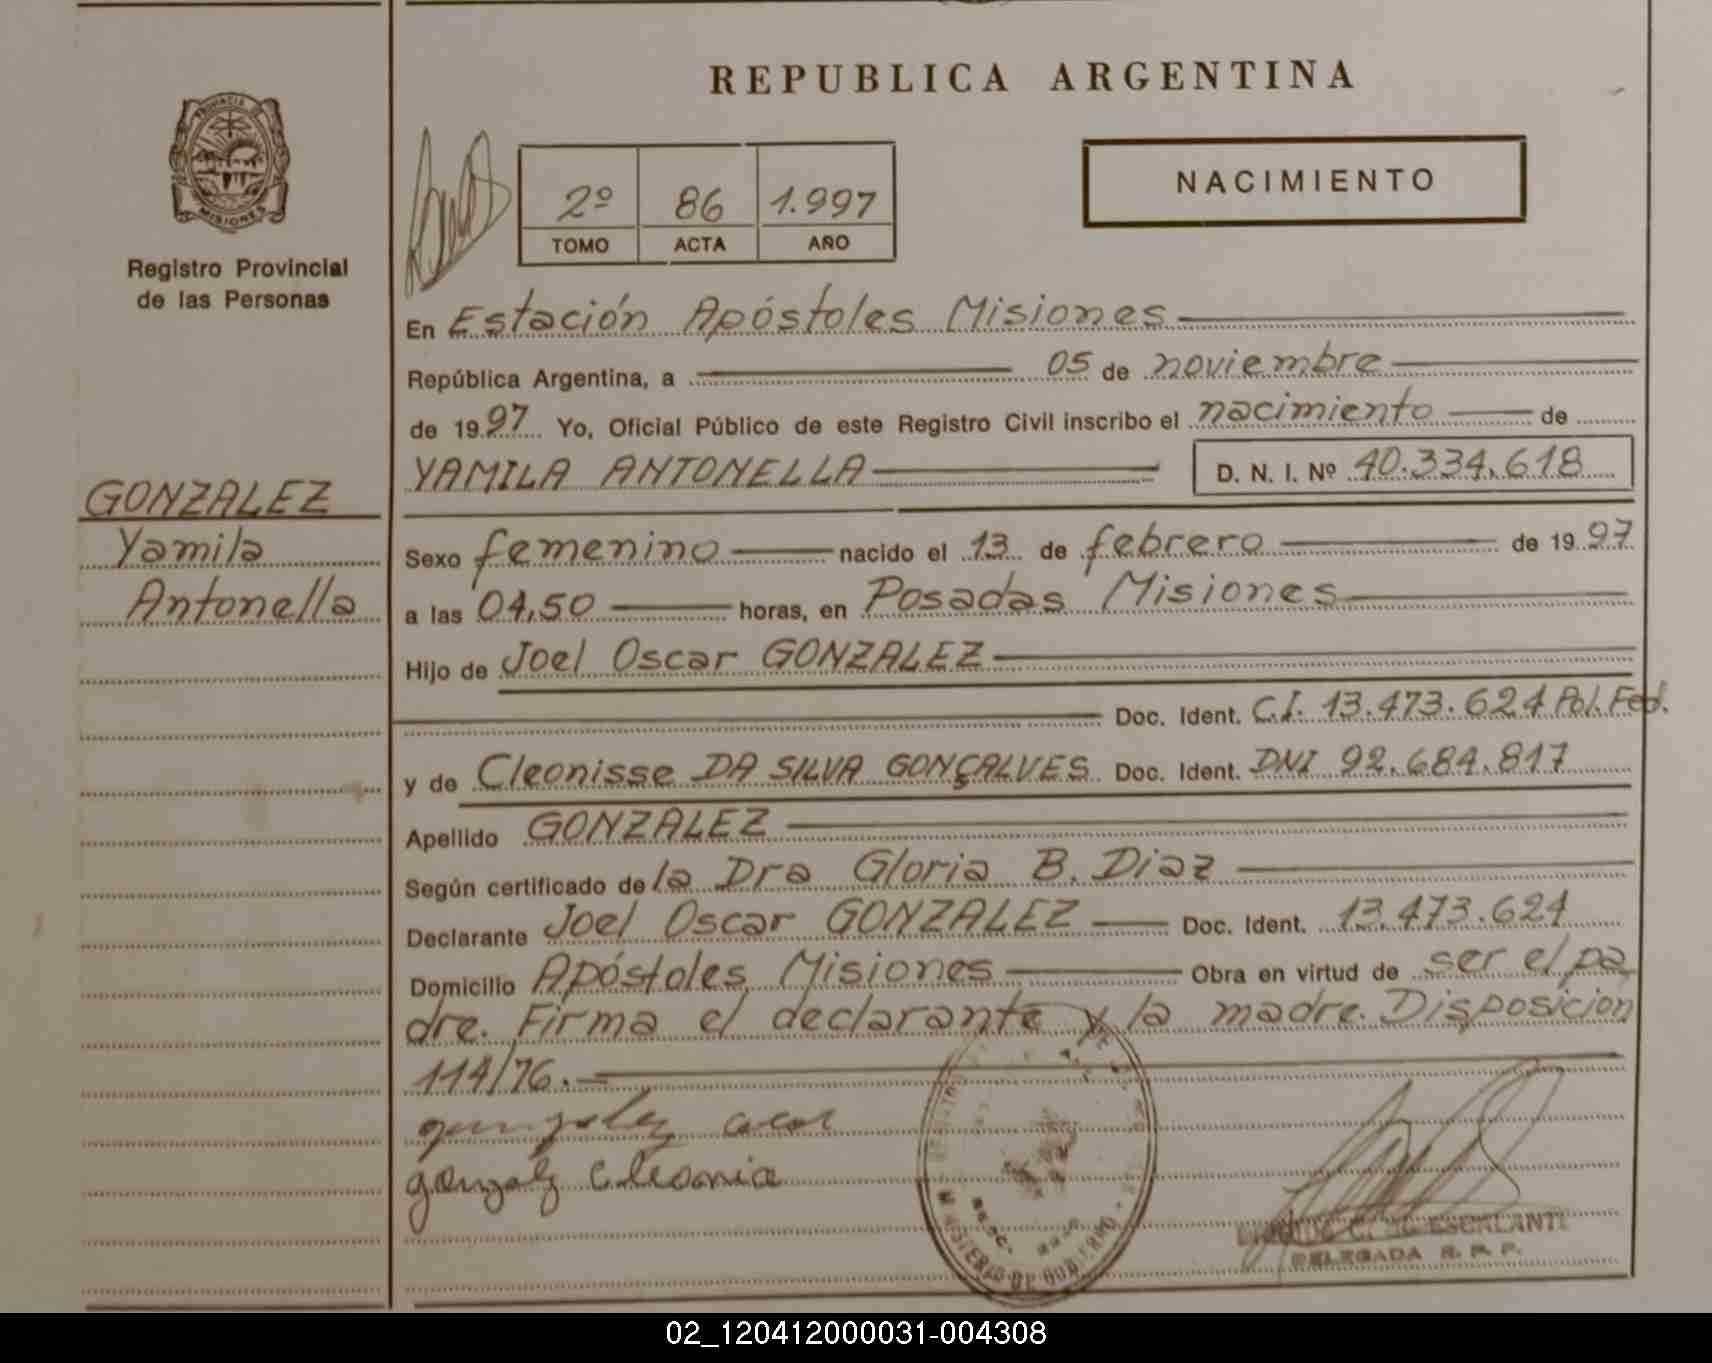 REPUBLICA ARGENTINA
PROVINCIA DE MISIONES
Registro Provincial
de las Personas
2º 86 1.997
TOMO ACTA AÑO
NACIMIENTO
En Estación Apóstoles Misiones
República Argentina, a 05 de noviembre
de 1997 Yo, Oficial Público de este Registro Civil inscribo el nacimiento de
YAMILA ANTONELLA D. N. I. Nº 40.334.618
GONZALEZ
Yamila
Antonella
Sexo femenino nacido el 13 de febrero de 1997
a las 04,50 horas, en Posadas Misiones
Hijo de Joel Oscar GONZALEZ
Doc. Ident. C.I. 13.473.624 Pol. Fed.
y de Cleonisse DA SILVA GONÇALVES Doc. Ident. DNI 92.684.817
Apellido GONZALEZ
Según certificado de la Dra Gloria B. Diaz
Declarante Joel Oscar GONZALEZ Doc. Ident. 13.473.624
Domicilio Apóstoles Misiones Obra en virtud de ser el pa
dre. Firma el declarante y la madre. Disposicion
114/76.-
gonzalez
gonzalez cleonice
MINISTERIO DE GOBIERNO
ESCALANTE
DELEGADA R. P. P.
02_120412000031-004308